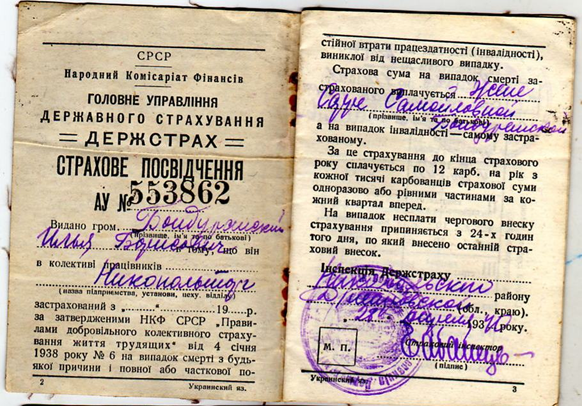 СРСР
Народний Комісаріат Фінансів
ГОЛОВНЕ УПРАВЛІННЯ
ДЕРЖАВНОГО СТРАХУВАННЯ
ДЕРЖСТРАХ
СТРАХОВЕ ПОСВІДЧЕННЯ
АУ № 553862
Видано гром.
(прізвище, ім'я та по батькові)
Борисович в тому, що він
в колективі працівників
Никопольторг
(назва підприємства, установи, цеху, відділу)
застрахований з „ " 19 р.
за затвердженими НКФ СРСР „Правилами добровільного колективного страху-
вання життя трудящих" від 4 січня
1938 року № 6 на випадок смерті з будь-
якої причини і повної або часткової по-
2
Украинский яз.
стійної втрати працездатності (інвалідності),
виниклої від нещасливого випадку.
Страхова сума на випадок смерті за-
страхованого виплачується жене
Самойловной
(прізвище, ім'я та по батькові)
а на випадок інвалідності—самому застра-
хованому.
За це страхування до кінця страхового
року сплачується по 12 карб. на рік з
кожної тисячі карбованців страхової суми
одноразово або рівними частинами за ко-
жний квартал вперед.
На випадок несплати чергового внеску
страхування припиняється з 24-х годин
того дня, по який внесено останній стра-
ховий внесок.
Інспекція Держстраху
району
(обл. краю).
193 року.
М. П.
Страховий інспектор
(підпис)
Украинский яз.
3